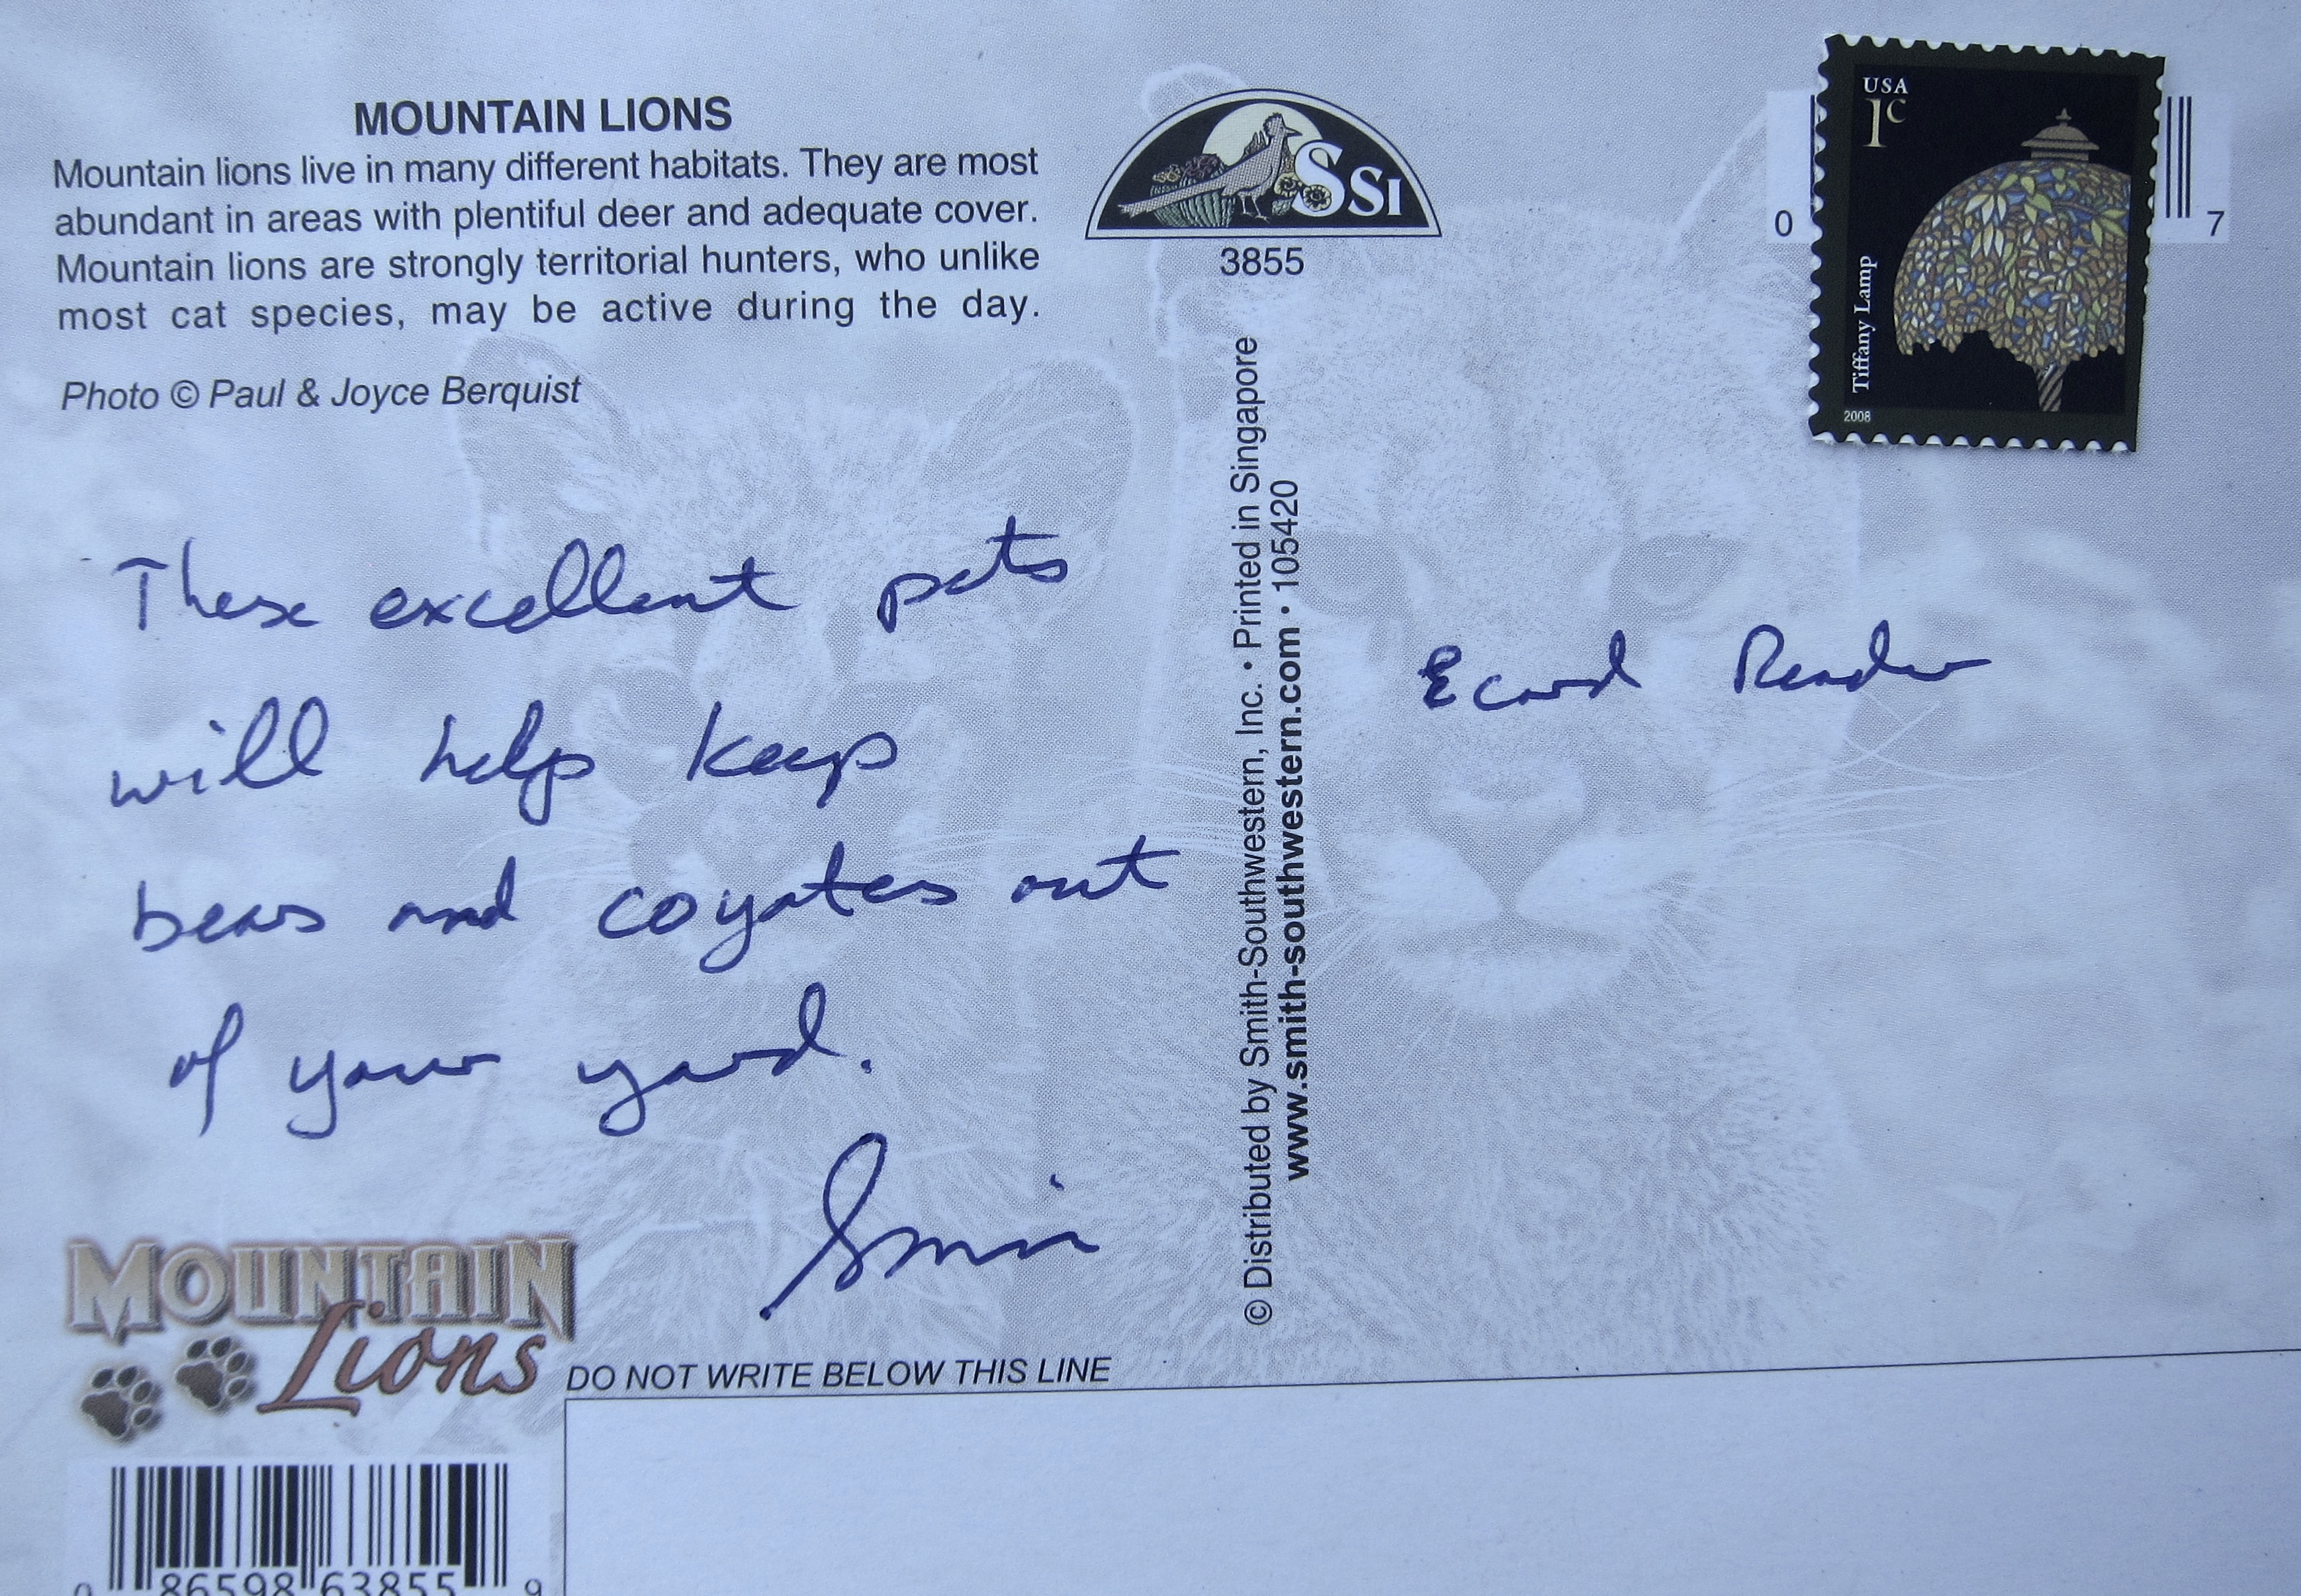 MOUNTAIN LIONS
Mountain lions live in many different habitats. They are most
abundant in areas with plentiful deer and adequate cover.
Mountain lions are strongly territorial hunters, who unlike
most cat species, may be active during the day.
Photo © Paul & Joyce Berquist
SSI
3855
USA
1c
Tiffany Lamp
2008
0
7
These excellent pets
will help keep
bears and coyotes out
of your yard.
© Distributed by Smith-Southwestern, Inc. • Printed in Singapore
www.smith-southwestern.com • 105420
Ecard Reader
MOUNTAIN
Lions
DO NOT WRITE BELOW THIS LINE
0 86598 63855 9